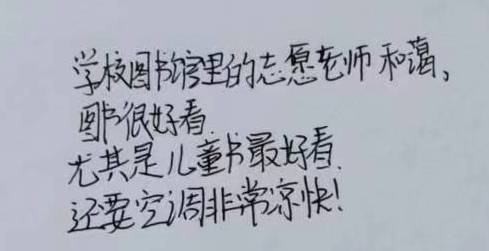 学校图书馆里的志愿老师和蔼,
图书很好看.
尤其是儿童书最好看.
还要空调非常凉快!